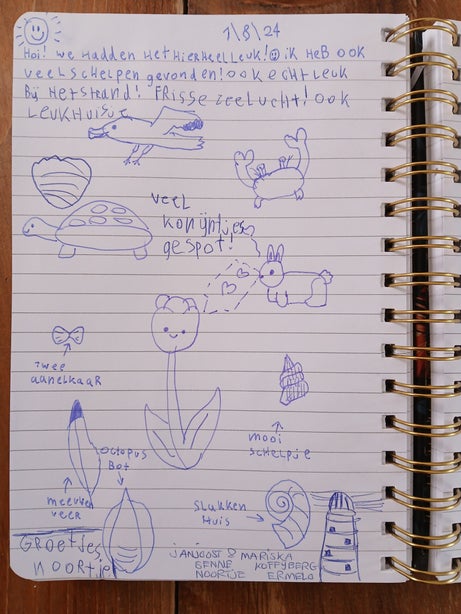 1/8/24
Hoi! We Hadden Het Hier Heel Leuk! ik HeB OOK
veel schelpen gevonden! ook echt Leuk
Bij Het Strand! Frisse zeelucht! OOK
LEUK Huisje
veel
konijntjes
gespot!
twee
aan elkaar
mooi
schelpje
octopus
Bot
meeuwe
veer
slakken
Huis
GROETJES
NOORTJE
JANJOOST & MARISKA
BENNE KOFFYBERG
NOORTJE ERMELO